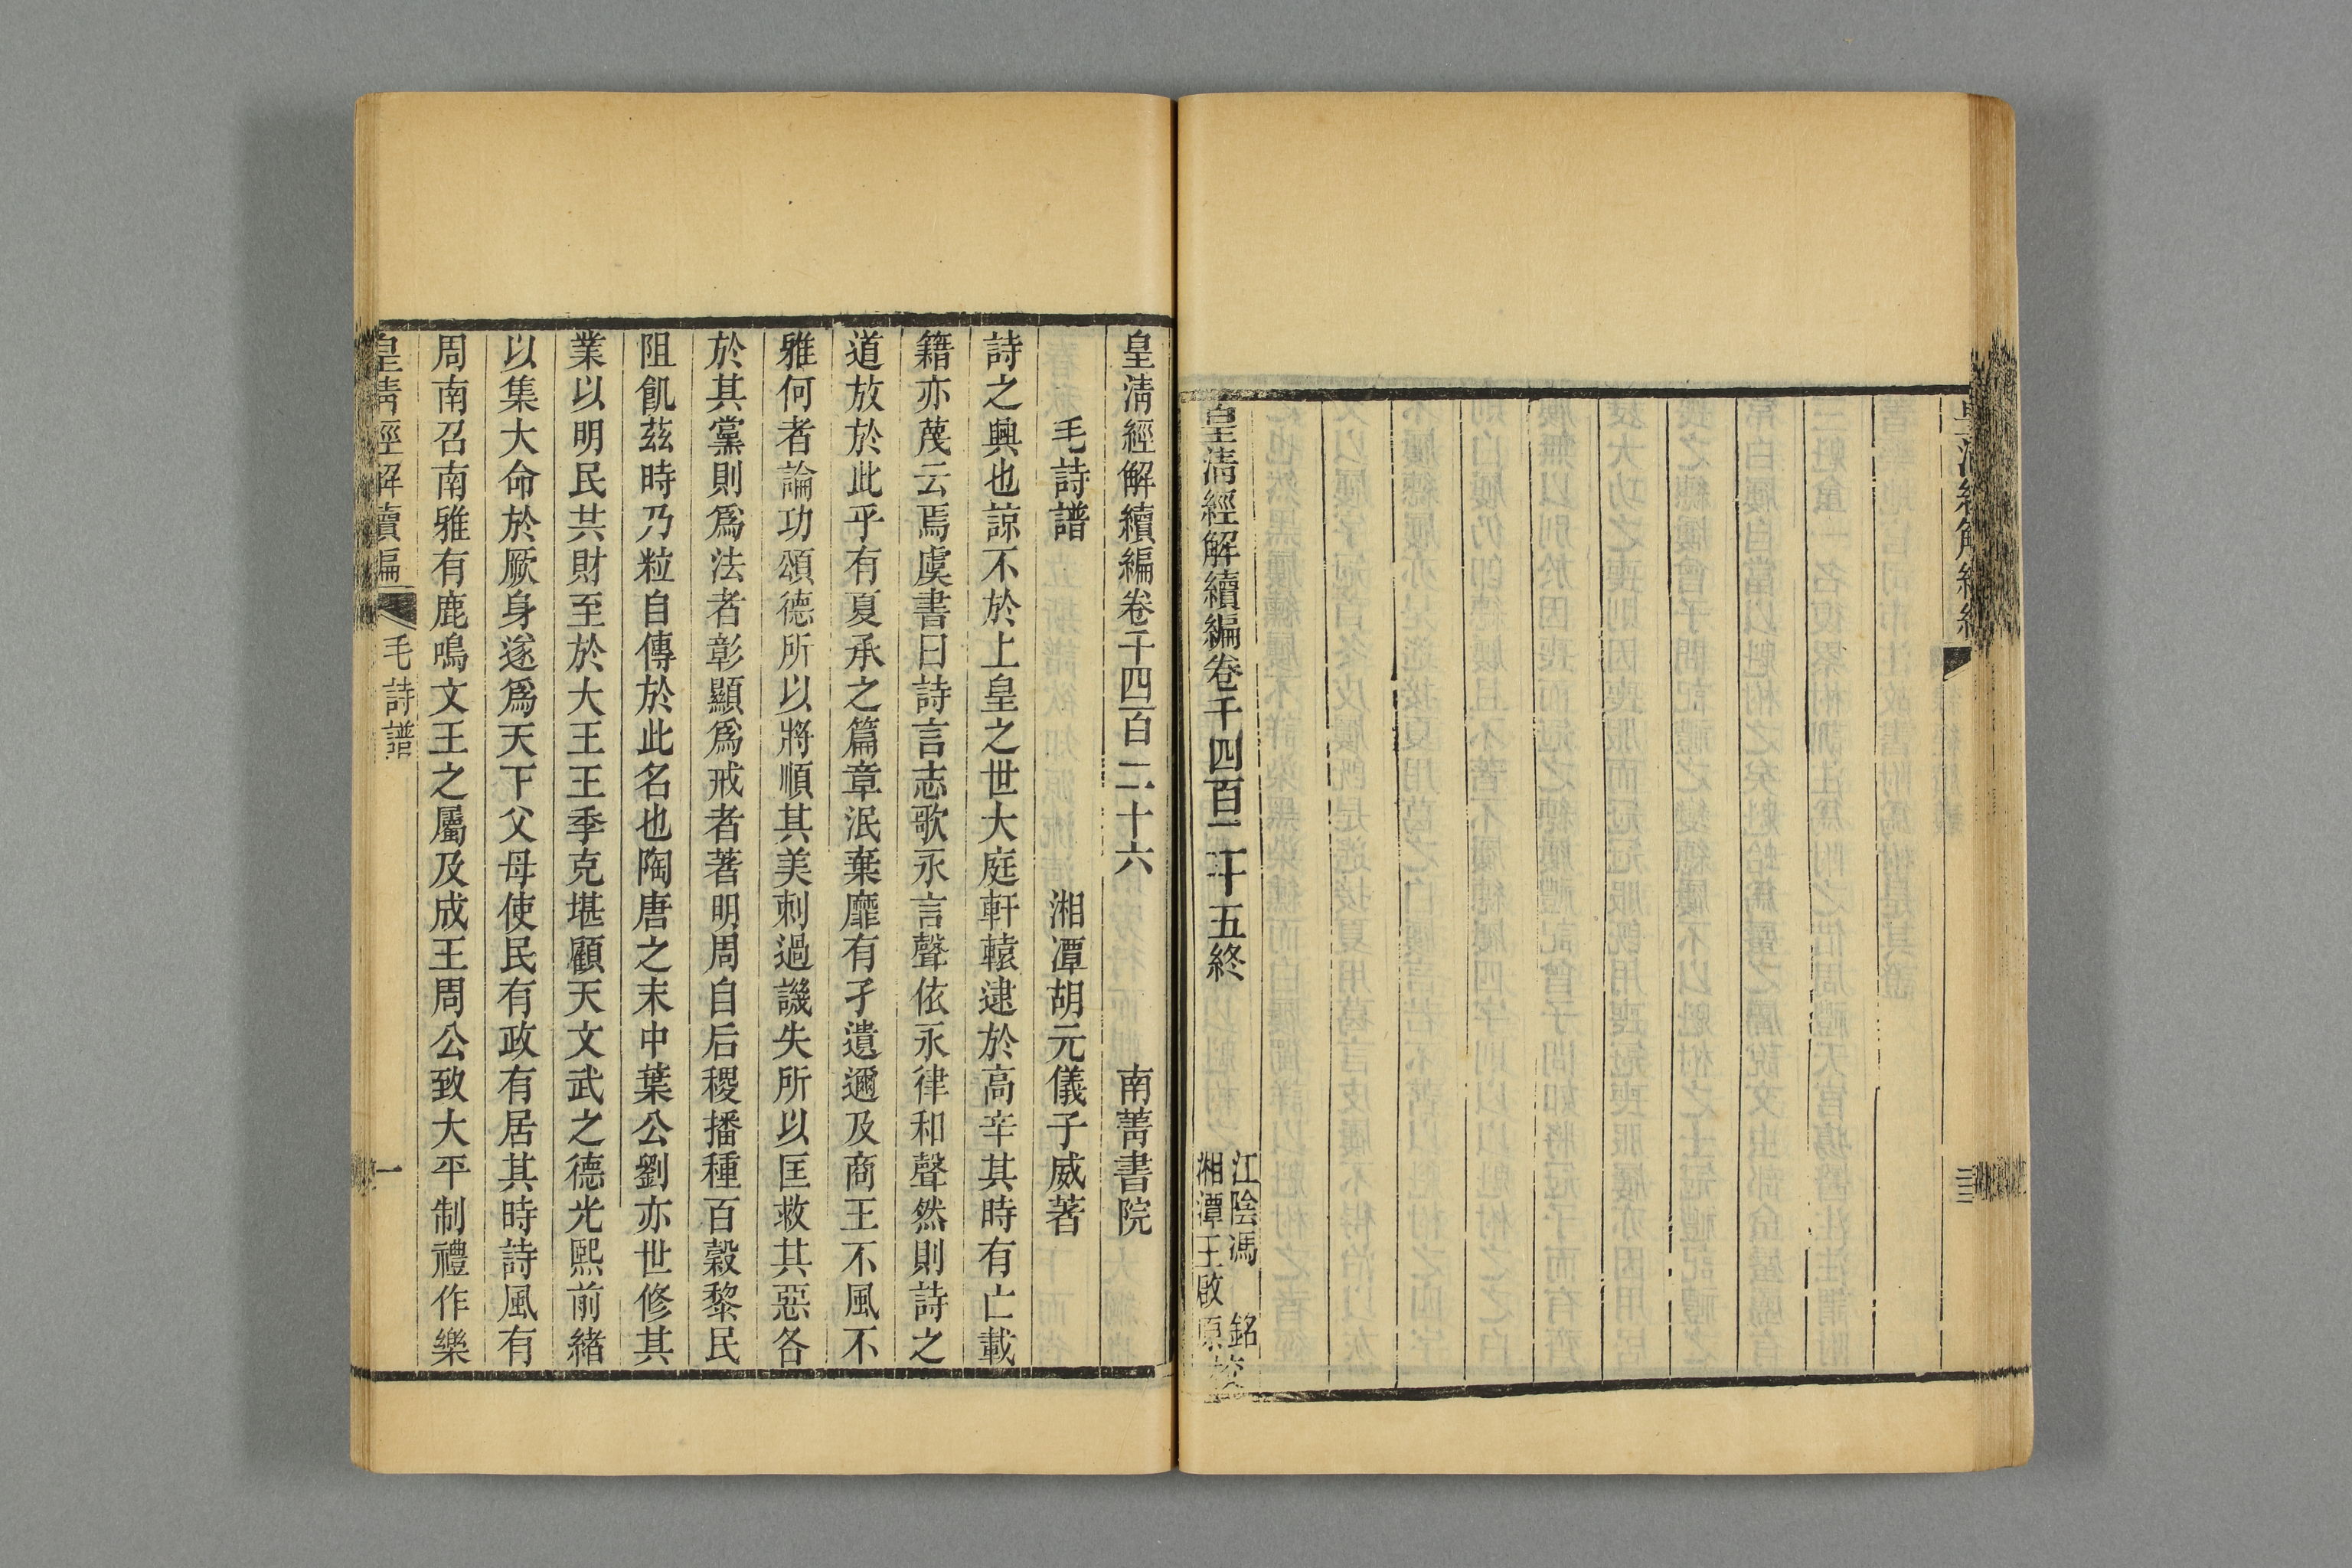 皇清經解續編卷千四百二十五終
江陰馮 銘
湘潭王啟原校
皇清經解續編卷千四百二十六 南菁書院
毛詩譜 湘潭胡元儀子威著
詩之興也諒不於上皇之世大庭軒轅逮於高辛其時有亡載
籍亦蔑云焉虞書曰詩言志歌永言聲依永律和聲然則詩之
道放於此乎有夏承之篇章泯棄靡有孑遺邇及商王不風不
雅何者論功頌德所以將順其美刺過譏失所以匡救其惡各
於其黨則爲法者彰顯爲戒者著明周自后稷播種百穀黎民
阻飢茲時乃粒自傳於此名也陶唐之末中葉公劉亦世修其
業以明民共財至於大王王季克堪顧天文武之德光熙前緒
以集大命於厥身遂爲天下父母使民有政有居其時詩風有
周南召南雅有鹿鳴文王之屬及成王周公致大平制禮作樂
皇清經解續編 毛詩譜 一